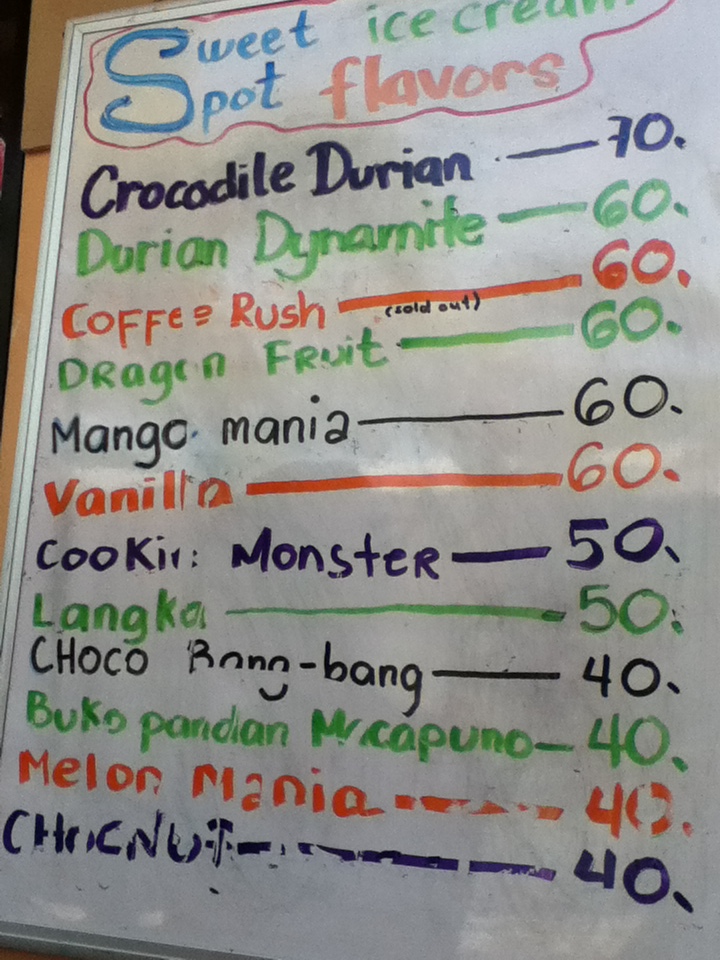 Sweet ice cream
Spot flavors
Crocodile Durian - — 70.
Durian Dynamite — 60.
COFFEE Rush — 60.
(sold out)
DRagon FRuit — 60.
Mango mania — 60.
Vanilla — 60.
COOKie MonsTER — 50.
Langka — 50.
CHOCO Bang-bang — 40.
Buko pandan Macapuno — 40.
Melon Mania — 40.
CHOCNUT — 40.